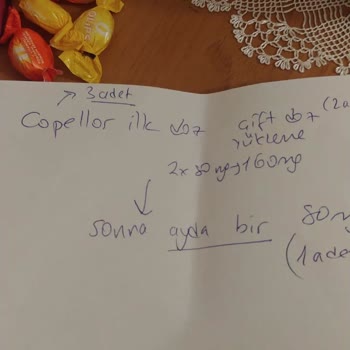 3 adet
Copellor ilk doz çift doz (2 a
yükleme
2x80mg → 160mg
sonra ayda bir 80m
(1 ade